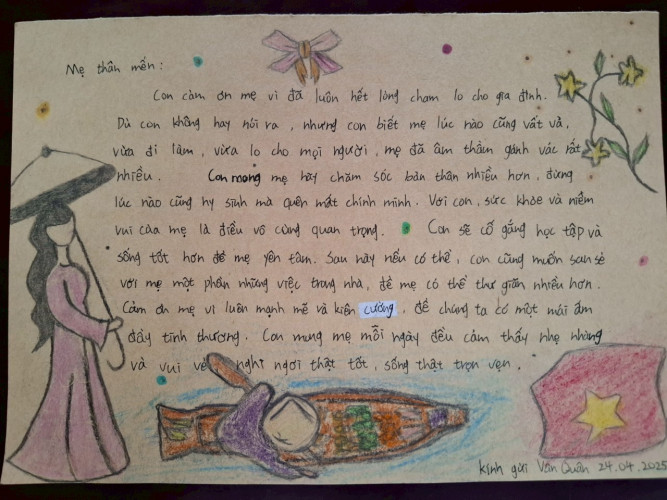 Mẹ thân mến :
Con cảm ơn mẹ vì đã luôn hết lòng chăm lo cho gia đình.
Dù con không hay nói ra , nhưng con biết mẹ lúc nào cũng vất vả,
vừa đi làm , vừa lo cho mọi người , mẹ đã âm thầm gánh vác rất
nhiều . Con mong mẹ hãy chăm sóc bản thân nhiều hơn , đừng
lúc nào cũng hy sinh mà quên mất chính mình . Với con , sức khỏe và niềm
vui của mẹ là điều vô cùng quan trọng . Con sẽ cố gắng học tập và
sống tốt hơn để mẹ yên tâm. Sau này nếu có thể , con cũng muốn san sẻ
với mẹ một phần những việc trong nhà, để mẹ có thể thư giãn nhiều hơn .
Cảm ơn mẹ vì luôn mạnh mẽ và kiên cường , để chúng ta có một mái ấm
đầy tình thương . Con mong mẹ mỗi ngày đều cảm thấy nhẹ nhàng
và vui vẻ nghỉ ngơi thật tốt , sống thật trọn vẹn .
kính gửi Vân Quân 24.04.2025